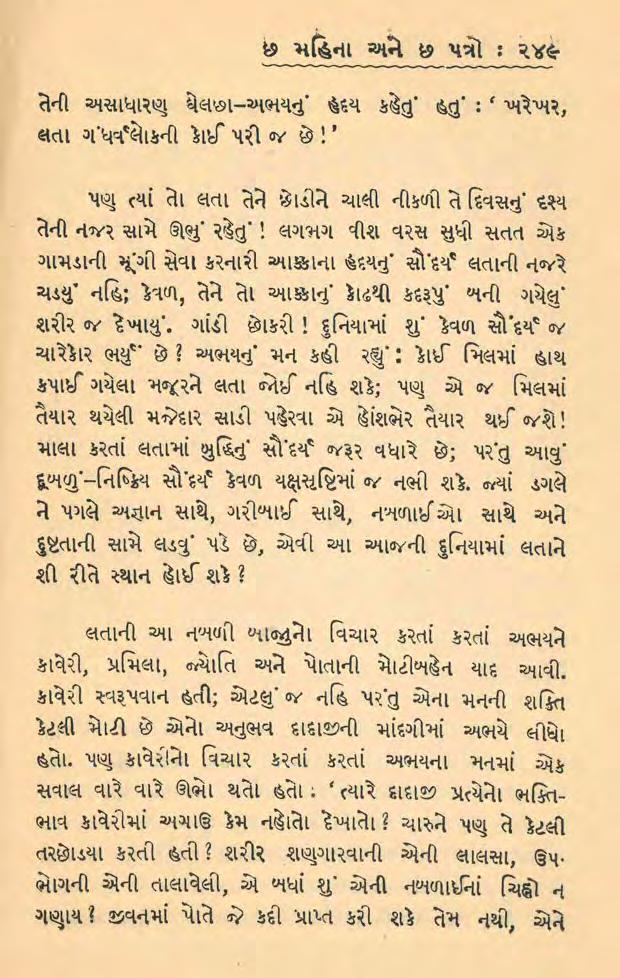 છ મહિના અને છ પત્રો : ૨૪૯
તેની અસાધારણ ઘેલછા–અભયનું હૃદય કહેતું હતું : ‘ ખરેખર,
લતા ગંધર્વલોકની કોઈ પરી જ છે ! ’
પણ ત્યાં તો લતા તેને છોડીને ચાલી નીકળી તે દિવસનું દૃશ્ય
તેની નજર સામે ઊભું રહેતું ! લગભગ વીશ વરસ સુધી સતત એક
ગામડાની મૂંગી સેવા કરનારી આક્કાના હૃદયનું સૌંદર્ય લતાની નજરે
ચડયું નહિ; કેવળ, તેને તો આક્કાનું કોઢથી કદરૂપું બની ગયેલું
શરીર જ દેખાયું. ગાંડી છોકરી ! દુનિયામાં શું કેવળ સૌંદર્ય જ
ચારેકોર ભર્યું છે ? અભયનું મન કહી રહ્યું : કોઈ મિલમાં હાથ
કપાઈ ગયેલા મજૂરને લતા જોઈ નહિ શકે; પણ એ જ મિલમાં
તૈયાર થયેલી મજેદાર સાડી પહેરવા એ હોંશભેર તૈયાર થઈ જશે !
માલા કરતાં લતામાં બુદ્ધિનું સૌંદર્ય જરૂર વધારે છે; પરંતુ આવું
દૂબળું–નિષ્ક્રિય સૌંદર્ય કેવળ યક્ષસૃષ્ટિમાં જ નભી શકે. જ્યાં ડગલે
ને પગલે અજ્ઞાન સાથે, ગરીબાઈ સાથે, નબળાઈઓ સાથે અને
દુષ્ટતાની સામે લડવું પડે છે, એવી આ આજની દુનિયામાં લતાને
શી રીતે સ્થાન હોઈ શકે ?
લતાની આ નબળી બાજુનો વિચાર કરતાં કરતાં અભયને
કાવેરી, પ્રમિલા, જ્યોતિ અને પોતાની મોટીબહેન યાદ આવી.
કાવેરી સ્વરૂપવાન હતી; એટલું જ નહિ પરંતુ એના મનની શક્તિ
કેટલી મોટી છે એનો અનુભવ દાદાજીની માંદગીમાં અભયે લીધો
હતો. પણ કાવેરીનો વિચાર કરતાં કરતાં અભયના મનમાં એક
સવાલ વારે વારે ઊભો થતો હતો : ‘ ત્યારે દાદાજી પ્રત્યેનો ભક્તિ-
ભાવ કાવેરીમાં અગાઉ કેમ નહોતો દેખાતો ? ચારુને પણ તે કેટલી
તરછોડયા કરતી હતી ? શરીર શણગારવાની એની લાલસા, ઉપ-
ભોગની એની તાલાવેલી, એ બધાં શું એની નબળાઈનાં ચિહ્નો ન
ગણાય ? જીવનમાં પોતે જે કદી પ્રાપ્ત કરી શકે તેમ નથી, એને